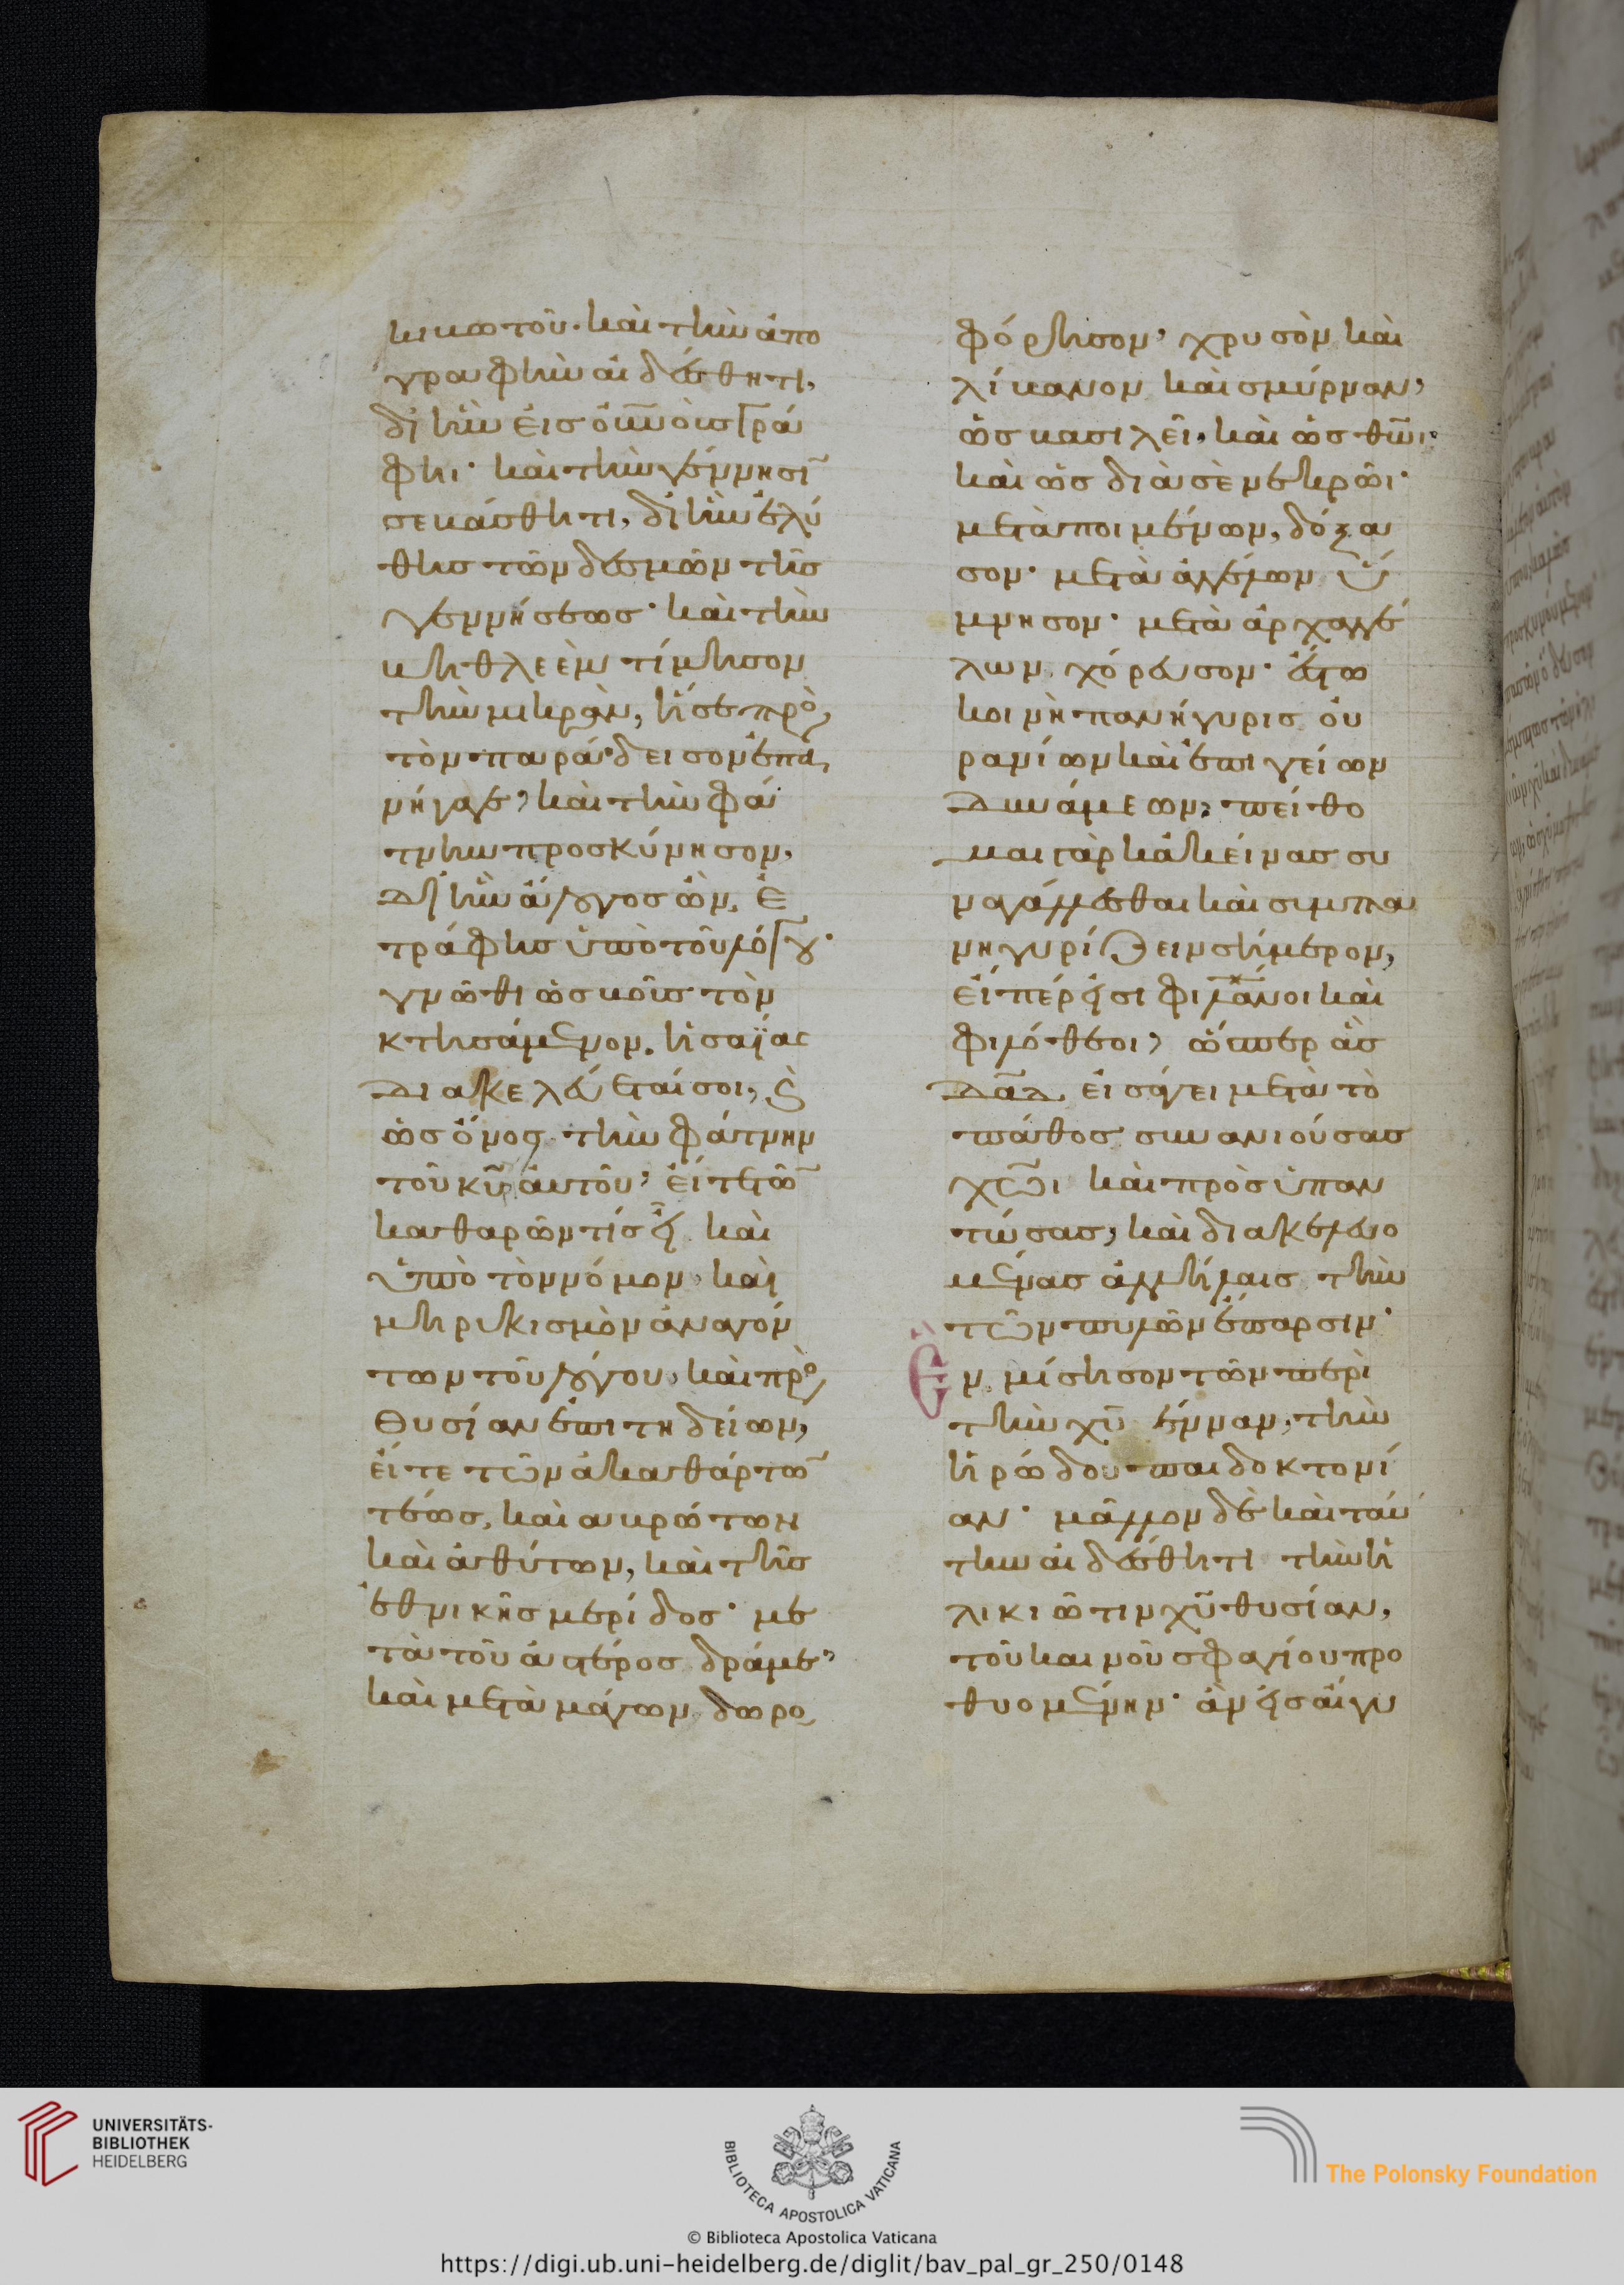 κιβωτοῦ· καὶ τὴν ἀπο
γραφὴν αἰδέσθητι,
δι' ἣν εἰς οὐνοὺς γρά
φηι· καὶ τὴν γέννησῖ
σεβάσθητι, δι' ἣν ἐλύ
θης τῶν δεσμῶν τῆς
γεννήσεως· καὶ τὴν
βηθλεὲμ τίμησον
τὴν μικρὰν, ἥ σε πρὸς
τὸν παράδεισον ἐπα
νήγαγε, καὶ τὴν φά
τνην προσκύνησον,
δι' ἣν ἄλογος ὢν, ἐ
τράφης ὑπὸ τοῦ λόγου·
γνῶθι ὡς βοῦς τὸν
κτησάμενον. ἡσαΐας
διακελεύεταί σοι, καὶ
ὡς ὄνος τὴν φάτνην
τοῦ κυ αὐτοῦ, εἴτε τῶ
καθαρῶν τίς εἶ καὶ
ὑπὸ τὸν νόμον καὶ
μηρυκισμὸν ἀναγόν
των τοῦ λόγου, καὶ πρὸς
θυσίαν ἐπιτηδείων,
εἴτε τῶν ἀκαθάρτω
τέως, καὶ αβρώτων
καὶ ἀθύτων, καὶ τῆς
ἐθνικῆς μερίδος· με
τὰ τοῦ ἀστέρος δράμε,
καὶ μετὰ μάγων δωρο
φόρησον, χρυσὸν καὶ
λίβανον καὶ σμύρναν,
ὡς βασιλεῖ, καὶ ὡς θωι·
καὶ ὡς διὰ σὲ νεκρῶι·
μετὰ ποιμένων, δόξα
σον· μετὰ ἀγγέλων ὕ
μνησον· μετὰ ἀρχαγγέ
λων χόρευσον· ἔστω
κοινὴ πανήγυρις οὐ
ρανίων καὶ ἐπιγείων
δυνάμεων, πείθο
μαι γὰρ κἀκείνας συ
ναγάλλεσθαι καὶ συμπα
νηγυρίζειν σήμερον,
εἴπερ εἰσι φιλανοι καὶ
φιλόθεοι, ὥσπερ ἃς
δαδ εἰσάγει μετὰ τὸ
πάθος συνανιούσας
χῶι καὶ πρὸς ὑπαν
τώσας, καὶ διακελευο
μένας ἀλλήλαις τὴν
τῶν πυλῶν ἔπαρσιν·
Ἓν μίσησον τῶν περὶ
τὴν χυ γένναν, τὴν
ἡρώδου παιδοκτονί
αν· μᾶλλον δὲ καὶ ταύ
την αἰδέσθητι τὴν ἡ
λικιῶτιν χυ θυσίαν,
τοῦ καινοῦ σφαγίου προ
θυομένην· ἂν εἰς αἴγυ
UNIVERSITÄTS-
BIBLIOTHEK
HEIDELBERG
BIBLIOTECA APOSTOLICA VATICANA
The Polonsky Foundation
© Biblioteca Apostolica Vaticana
https://digi.ub.uni-heidelberg.de/diglit/bav_pal_gr_250/0148